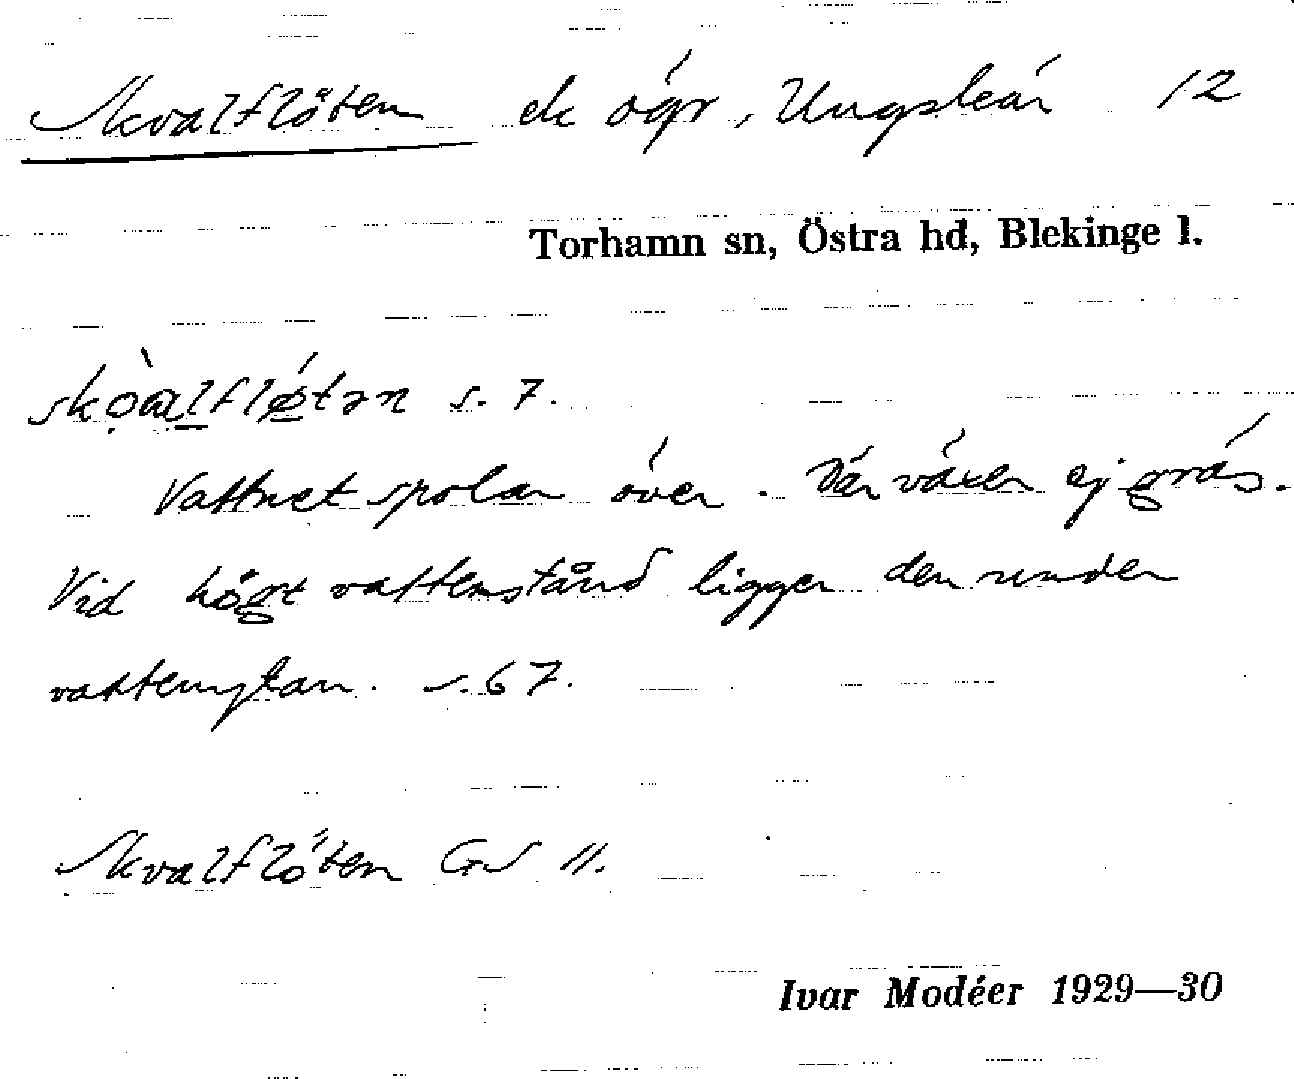 Skvalflöten ek ögr, Ungskär 12
Torhamn sn, Östra hd, Blekinge l.
s. 7.
Vattnet spolar över. Där växer ej gräs.
Vid högt vattenstånd ligger den under
vattenytan. s. 67.
Skvalflöten GS 11.
Ivar Modéer 1929—30